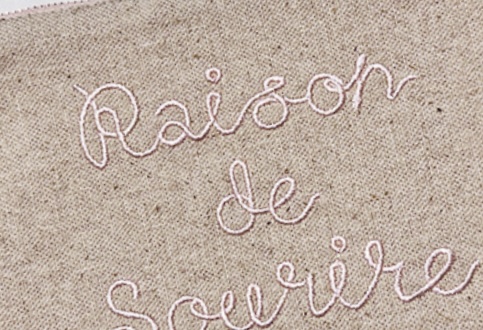 Raison
de
Sourire